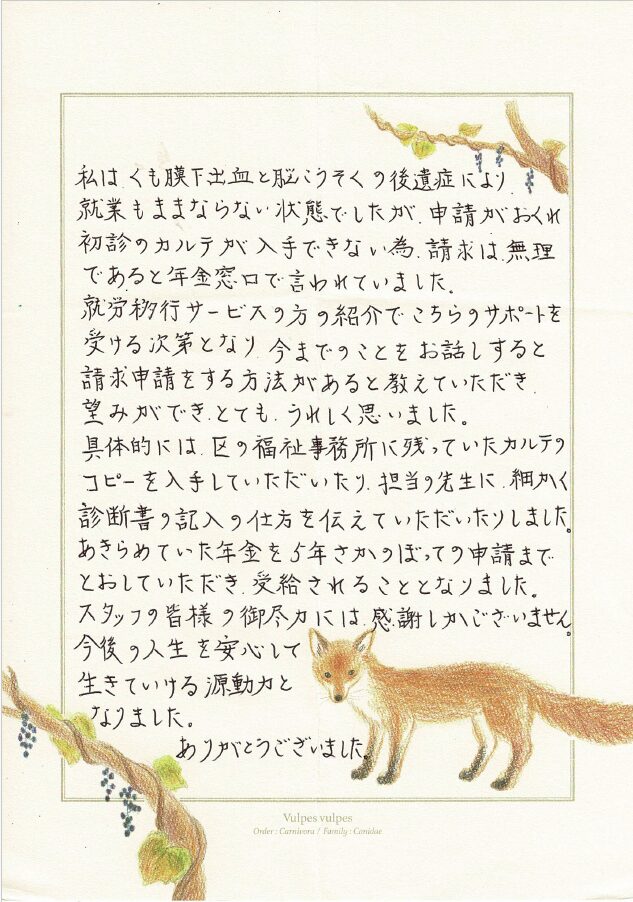 私は、くも膜下出血と脳こうそくの後遺症により、
就業もままならない状態でしたが、申請がおくれ
初診のカルテが入手できない為、請求は無理
であると年金窓口で言われていました。
就労移行サービスの方の紹介でこちらのサポートを
受ける次第となり、今までのことをお話しすると
請求申請をする方法があると教えていただき、
望みができ、とても、うれしく思いました。
具体的には、区の福祉事務所に残っていたカルテの
コピーを入手していただいたり、担当の先生に、細かく
診断書の記入の仕方を伝えていただいたりしました。
あきらめていた年金を5年さかのぼっての申請まで
とおしていただき、受給されることとなりました。
スタッフの皆様の御尽力には、感謝しかございません。
今後の人生を安心して
生きていける源動力と
なりました。
ありがとうございました。
Vulpes vulpes
Order : Carnivora / Family : Canidae